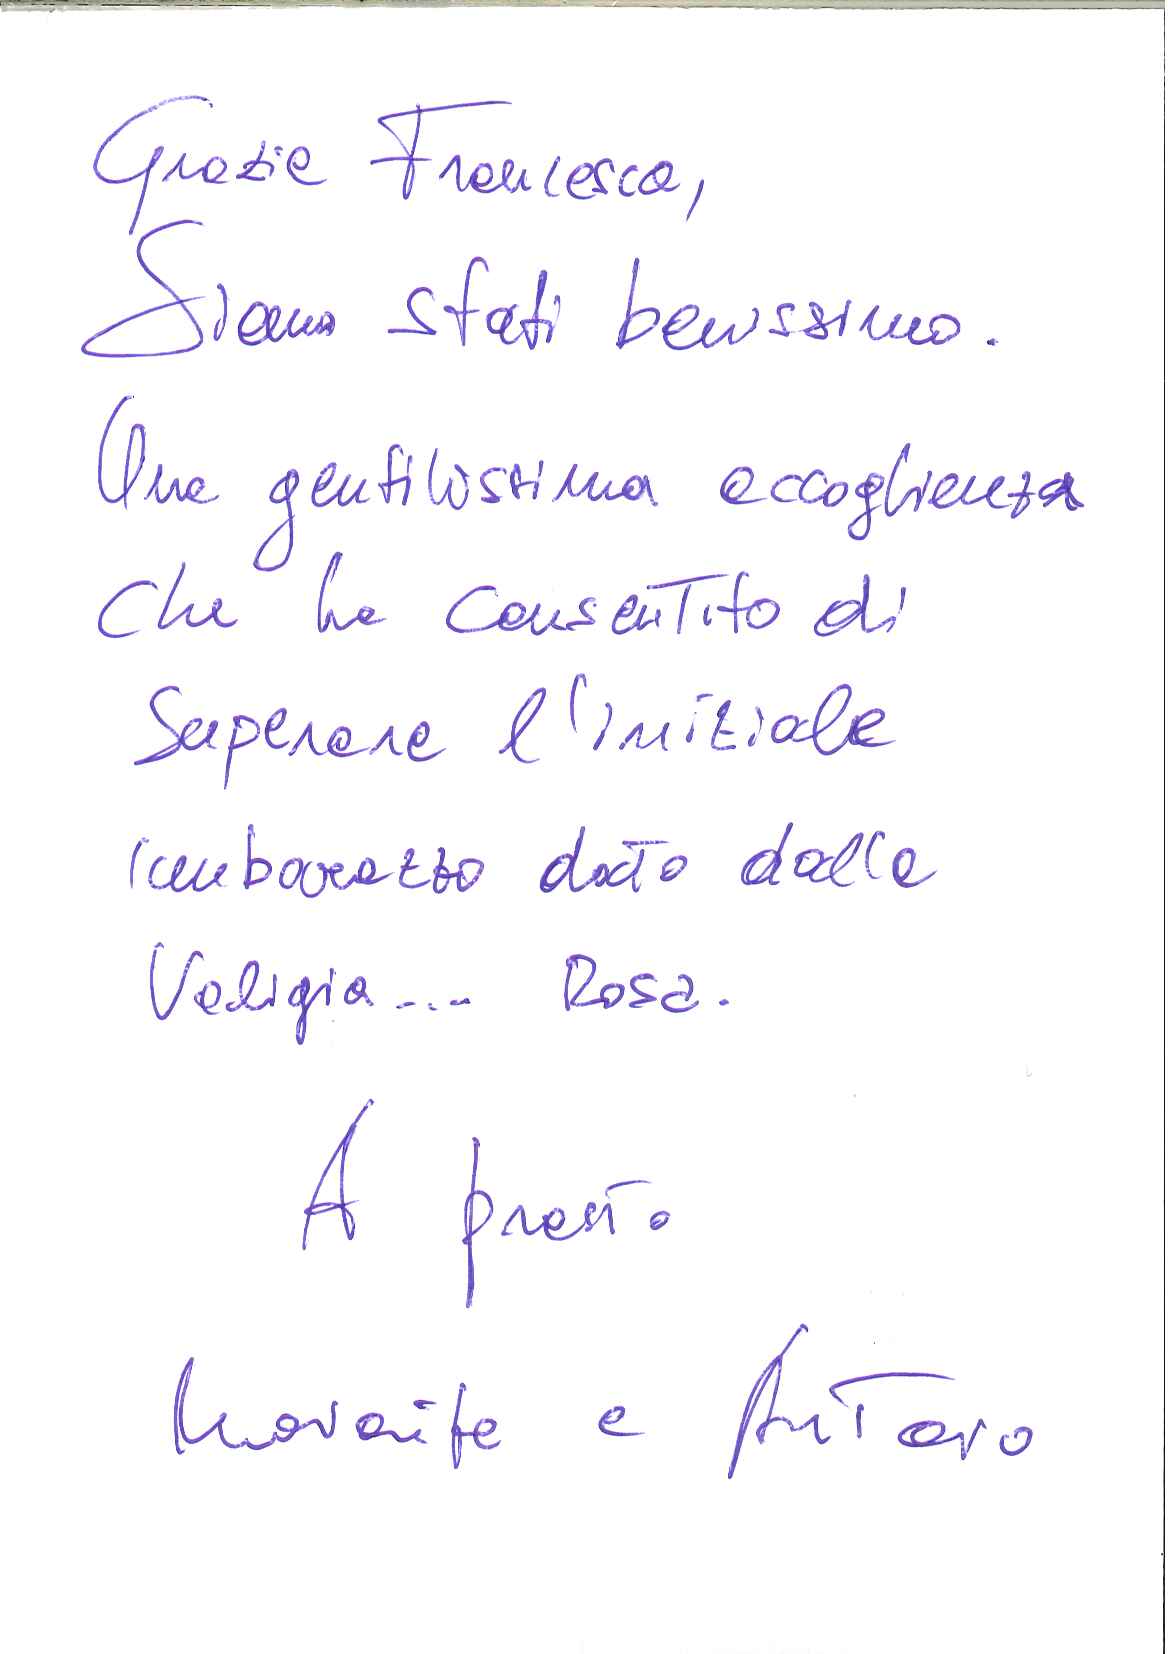 Grazie Francesca,
Siamo stati benissimo.
Una gentilissima accoglienza
che ha consentito di
superare l'iniziale
imbarazzo dato dalla
Valigia... Rosa.
A presto
e